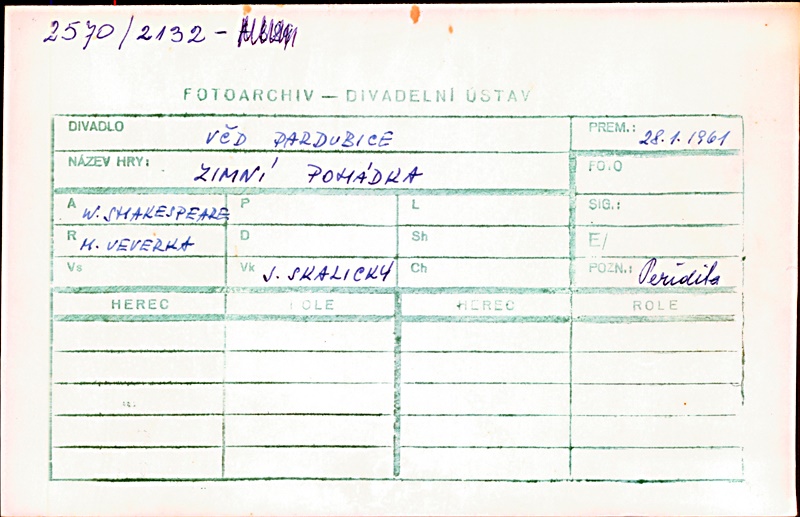 2570/2132 -
FOTOARCHIV — DIVADELNÍ ÚSTAV
DIVADLO VČD PARDUBICE PREM.: 28.1.1961
NÁZEV HRY: ZIMNÍ POHÁDKA FO.O
A W. SHAKESPEARE P L SIG.:
R M. VEVERKA D Sh E/
Vs Vk J. SKALICKÝ Ch POZN.: Perdita
HEREC ROLE HEREC ROLE